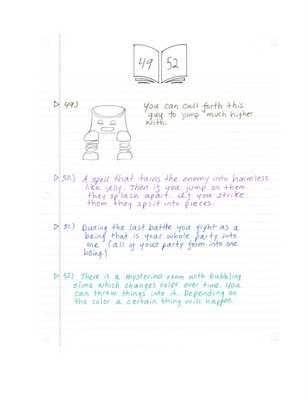 49 52
49.) You can call forth this
guy to jump much higher
with.
50.) A spell that turns the enemy into harmless
like jelly. Then if you jump on them
they splash apart. If you strike
them they split into pieces.
51.) During the last battle you fight as a
being that is your whole party into
one (all of your party form into one
being.)
52.) There is a mysterious room with bubbling
slime which changes color over time. You
can throw things into it. Depending on
the color a certain thing will happen.